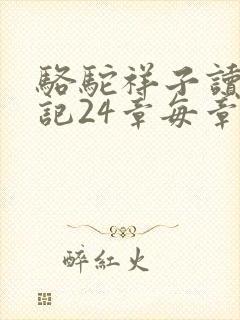 駱駝祥子讀
記24章每章
醉紅火